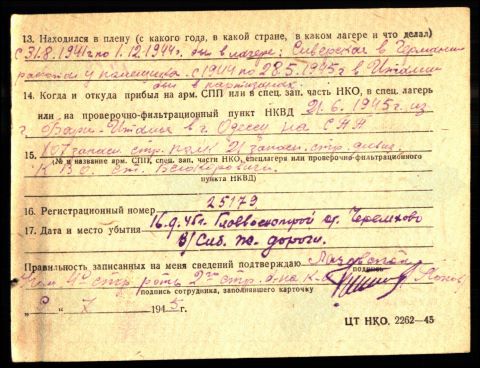 13. Находился в плену (с какого года, в какой стране, в каком лагере и что делал)
с 31.8.1941г по 1.12.1944г. был в лагере: Сиверская в Германии
работал у помещика. с 1944 по 28.5.1945 г в Италии
был в партизанах.
14. Когда и откуда прибыл на арм. СПП или в спец. зап. часть НКО, в спец. лагерь
или на проверочно-фильтрационный пункт НКВД 21.6.1945 г. из
г. Бари-Италия в г. Одессу на СПП
15. 107 запасн. стр. полк 21 запасн. стр. дивиз.
(№ и название арм. СПП, спец. зап. части НКО, спецлагеря или проверочно-фильтрационного
КВО ст.
пункта НКВД)
16. Регистрационный номер 25179
17. Дата и место убытия 16.9.45г. ст. Черемхово
В/Сиб. ж. дороги.
Правильность записанных на меня сведений подтверждаю
подпись
Ком. 4й стр роты 2го стр. б-на к-н
подпись сотрудника, заполнявшего карточку
" 9 " 7 1945 г.
ЦТ НКО. 2262—45